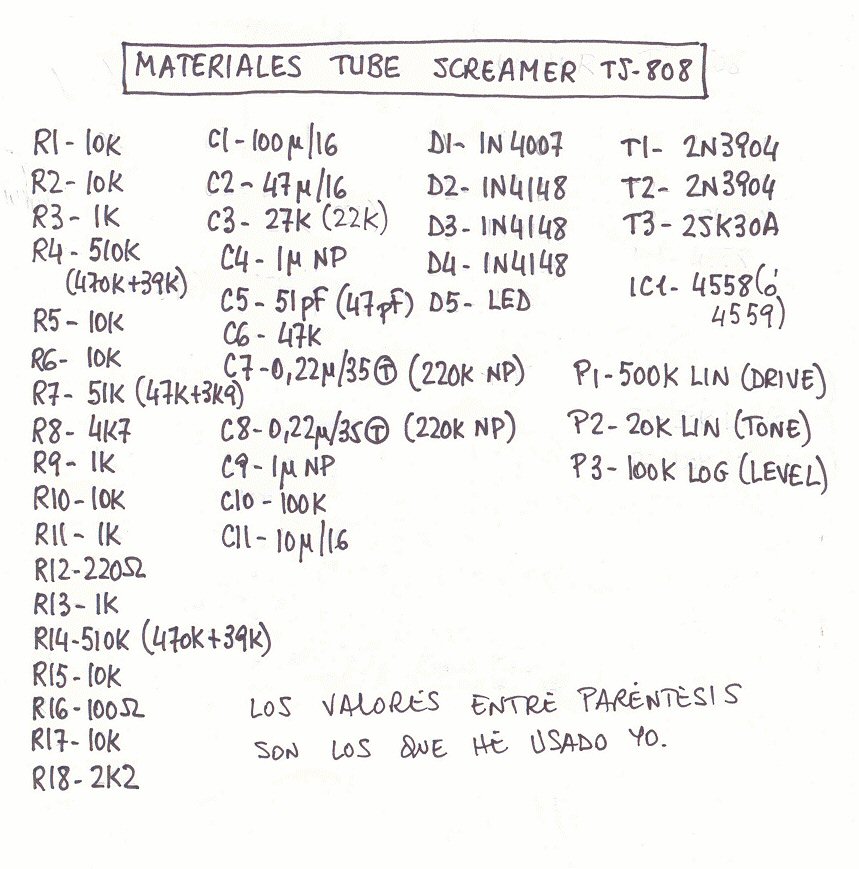 MATERIALES TUBE SCREAMER TS-808
R1-10K
R2-10K
R3-1K
R4-510K
(470K+39K)
R5-10K
R6-10K
R7-51K (47K+3K9)
R8-4K7
R9-1K
R10-10K
R11-1K
R12-220Ω
R13-1K
R14-510K (470K+39K)
R15-10K
R16-100Ω
R17-10K
R18-2K2
C1-100µ/16
C2-47µ/16
C3-27K (22K)
C4-1µ NP
C5-51pf (47pf)
C6-47K
C7-0,22µ/35Ⓣ (220K NP)
C8-0,22µ/35Ⓣ (220K NP)
C9-1µ NP
C10-100K
C11-10µ/16
D1-1N4007
D2-1N4148
D3-1N4148
D4-1N4148
D5-LED
T1-2N3904
T2-2N3904
T3-2SK30A
IC1-4558(ó
4559)
P1-500K LIN (DRIVE)
P2-20K LIN (TONE)
P3-100K LOG (LEVEL)
LOS VALORES ENTRE PARÉNTESIS
SON LOS QUE HE USADO YO.